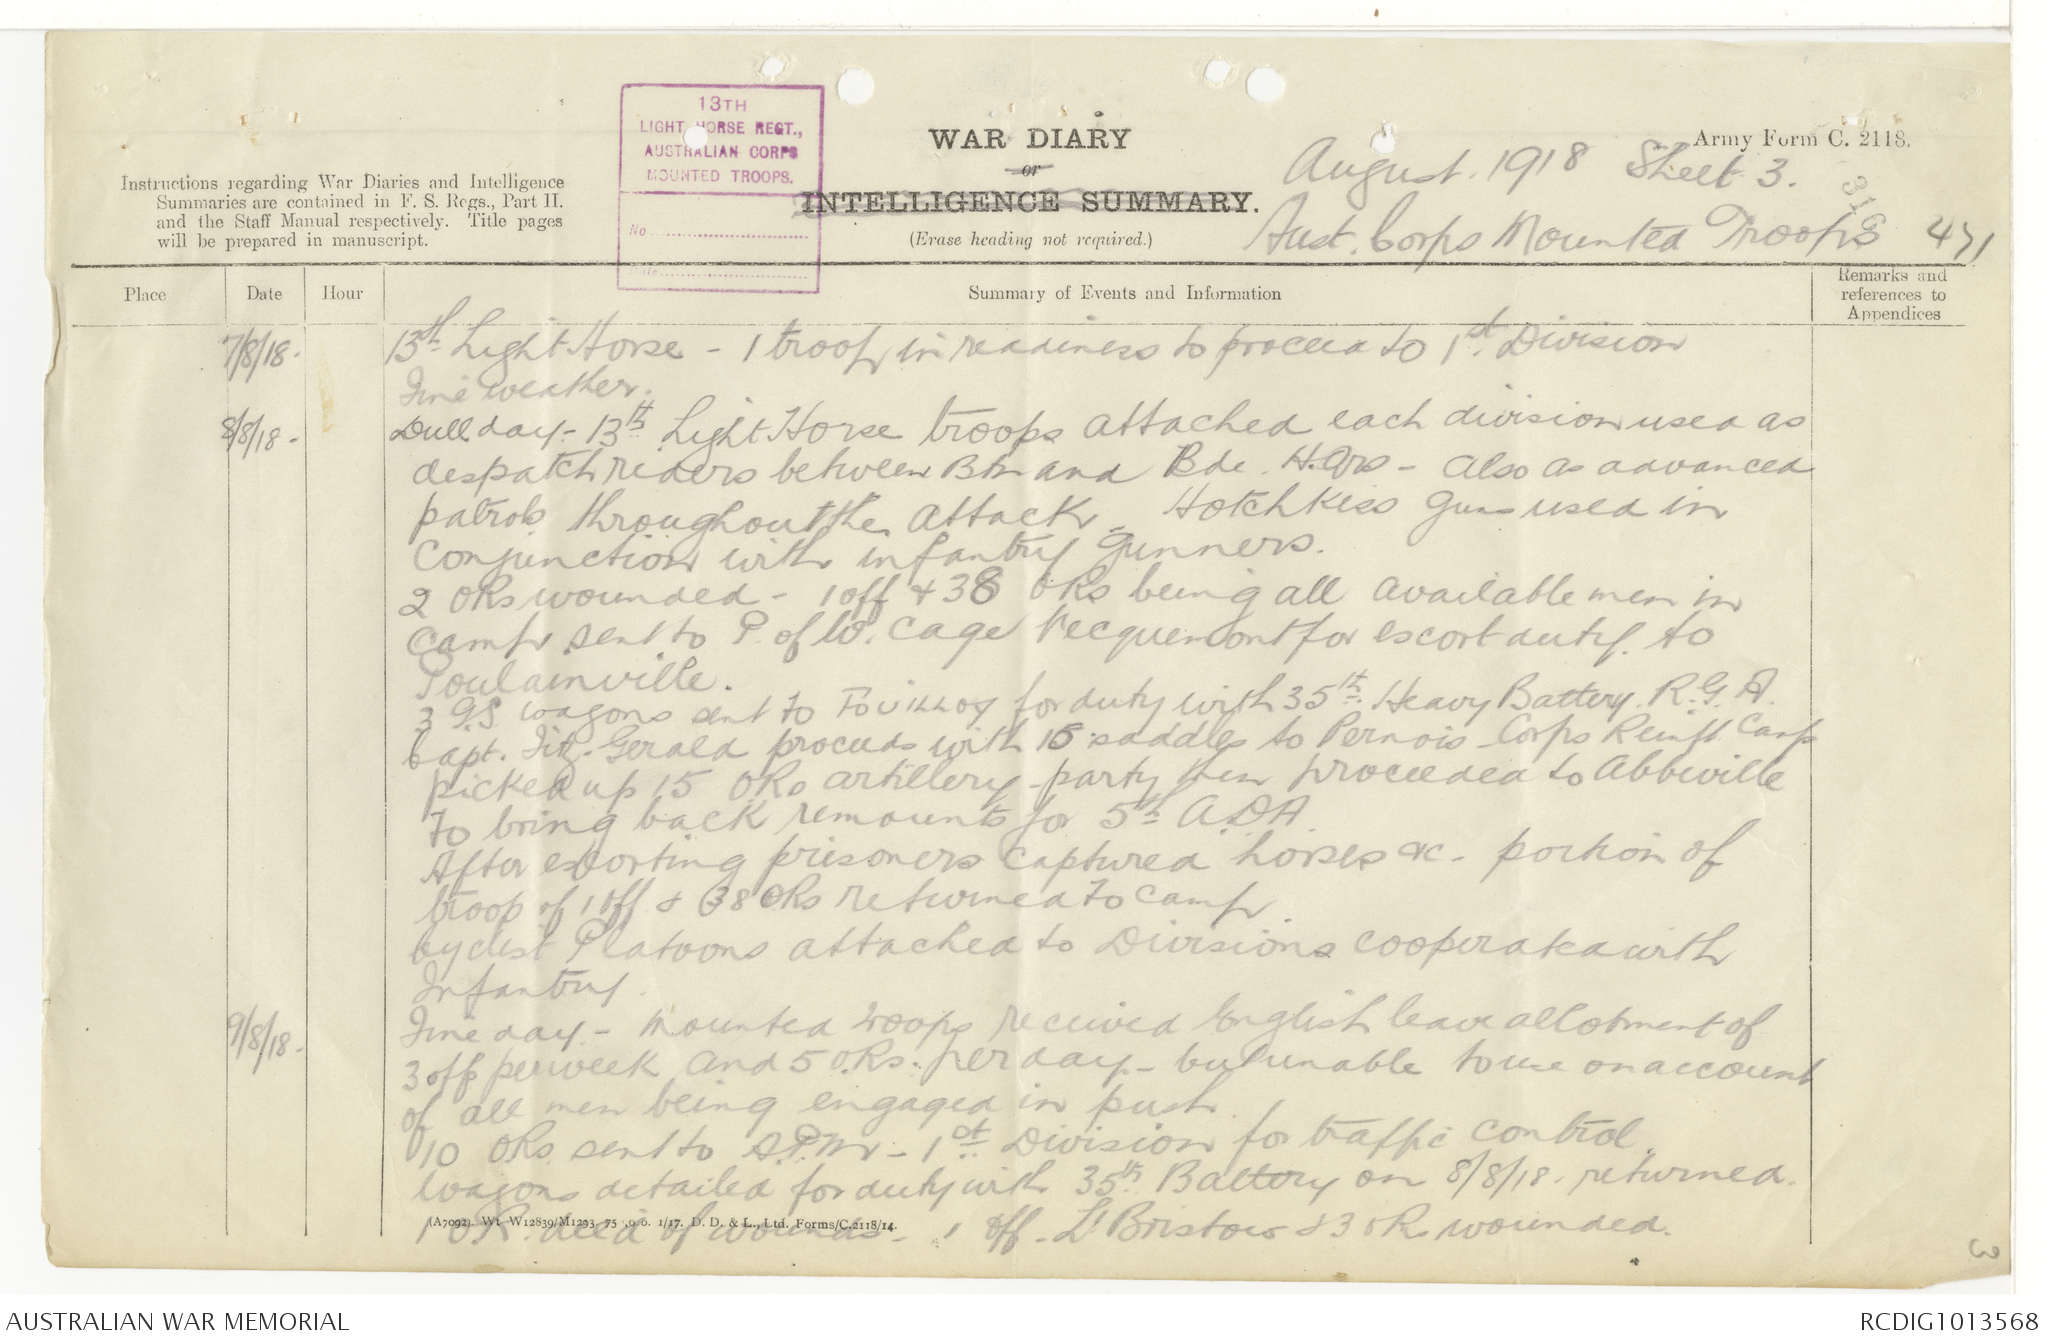 13TH
LIGHT HORSE REGT.,
AUSTRALIAN CORPS
MOUNTED TROOPS.
No
Date
Instructions regarding War Diaries and Intelligence
Summaries are contained in F. S. Regs., Part II.
and the Staff Manual respectively. Title pages
will be prepared in manuscript.
WAR DIARY
or
INTELLIGENCE SUMMARY.
(Erase heading not required.)
Army Form C. 2118.
August. 1918 Sheet 3.
Aust. Corps Mounted Troops
471
Place Date Hour Summary of Events and Information Remarks and references to Appendices
7/8/18. 13th Light Horse - 1 troop in readiness to proceed to 1st Division
Fine weather.
8/8/18. Dull day - 13th Light Horse troops attached each division used as
despatch riders between Btn and Bde. H.Qrs - also as advanced
patrols throughout the attack - Hotchkiss Guns used in
conjunction with infantry gunners.
2 ORs wounded - 1 off & 38 ORs being all available men in
camp sent to P. of W. cage Vecquemont for escort duty to
Poulainville.
3 G.S. wagons sent to FOUILLOY for duty with 35th Heavy Battery R.G.A.
Capt. Fitz-Gerald proceeds with 15 saddles to Pernois - Corps Reinft. Camp
picked up 15 ORs artillery - party then proceeded to Abbeville
to bring back remounts for 5th A.D.A.
After escorting prisoners captured horses &c - portion of
troop of 1 off & 38 ORs returned to camp.
Cyclist Platoons attached to Divisions cooperated with
Infantry.
9/8/18. Fine day - Mounted troops received English leave allotment of
3 off per week and 5 ORs. per day - but unable to use on account
of all men being engaged in push.
10 ORs. sent to A.P.M. - 1st Division for traffic control.
Wagons detailed for duty with 35th Battery on 8/8/18. returned.
1 O.R. died of wounds - 1 off - Lt Bristow & 3 ORs wounded.
(A7092). Wt W12839/M1293 75 ,0 0. 1/17. D. D. & L., Ltd. Forms/C.2118/14.
3
AUSTRALIAN WAR MEMORIAL
RCDIG1013568